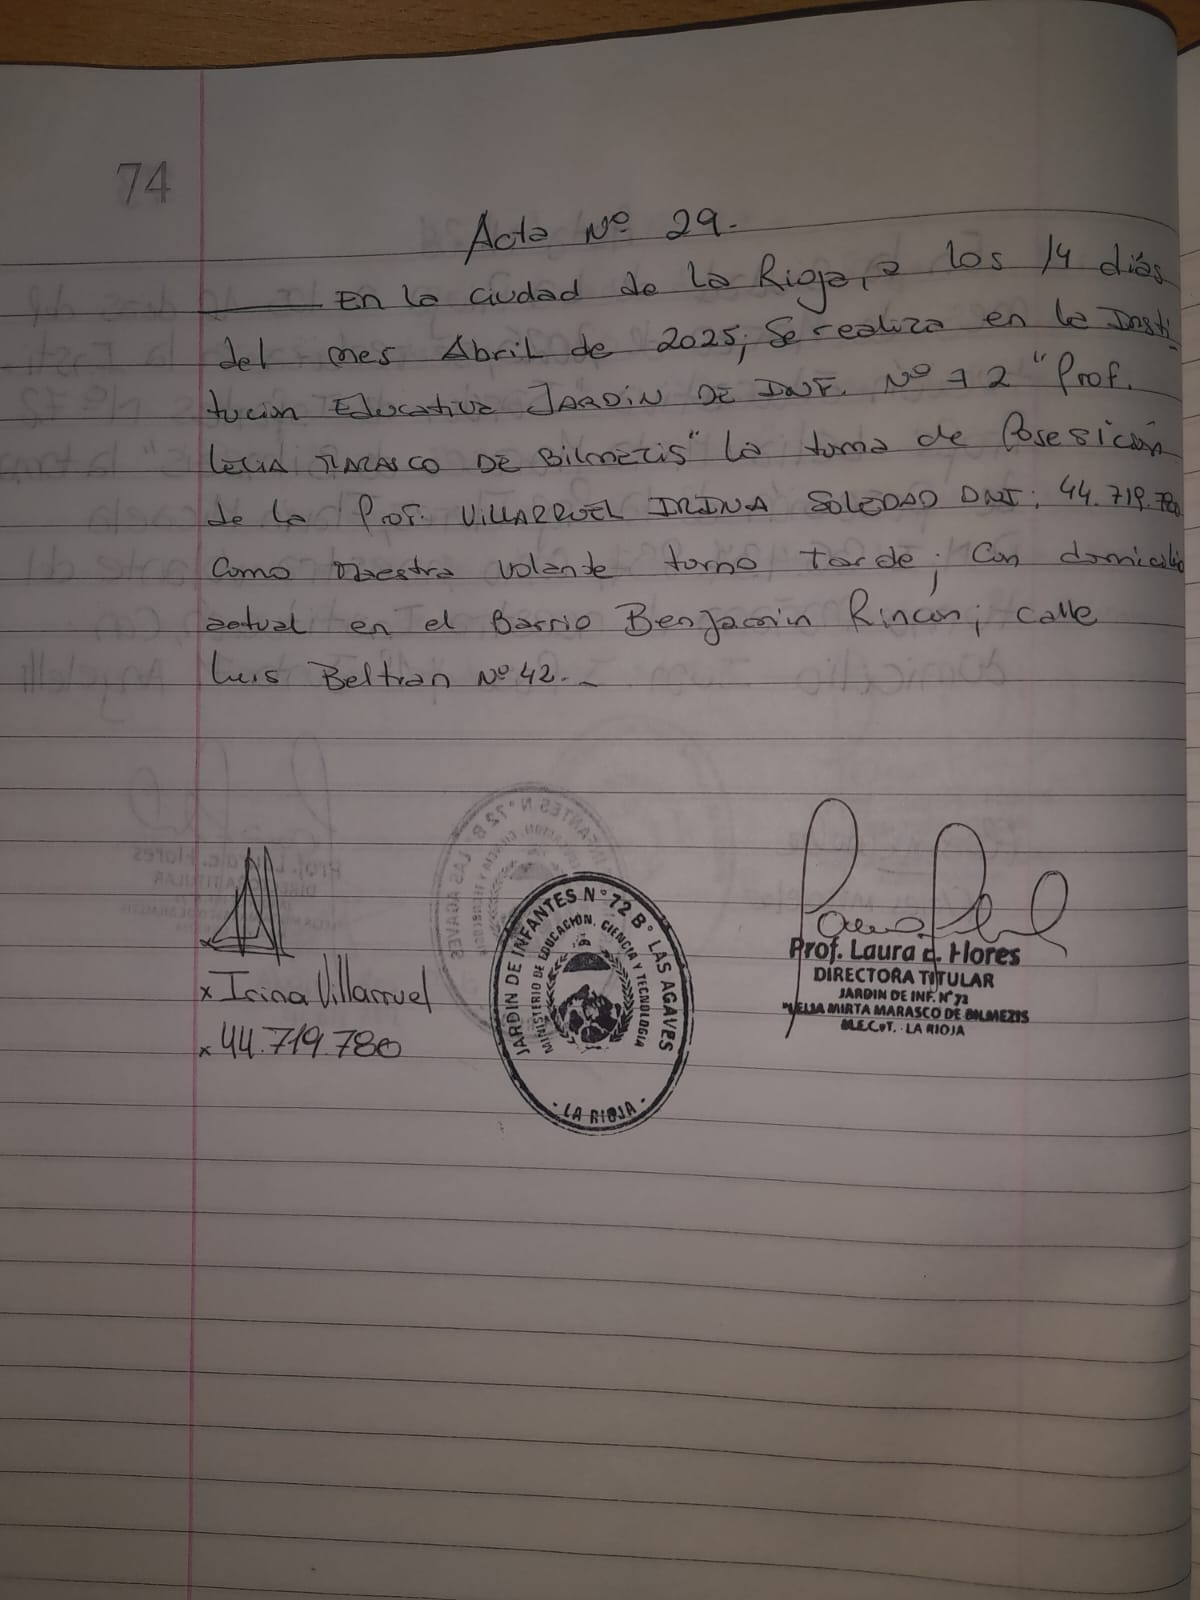 74
Acta Nº 29.-
En la ciudad de la Rioja, a los 14 días
del mes Abril de 2025; Se realiza en la Insti-
tución Educativa JARDÍN DE INF. Nº 72 "Prof.
MARASCO DE BILMEZIS" la toma de Posesición
de la Prof. VILLARRUEL IRINA SOLEDAD DNI: 44.719.780
Como Maestra volante turno Tarde; Con domicilio
actual en el Barrio Benjamin Rincón; calle
Luis Beltran Nº 42.-
x Irina Villarruel
x 44.719.780
JARDIN DE INFANTES N° 72 B° LAS AGAVES
MINISTERIO DE EDUCACIÓN, CIENCIA Y TECNOLOGIA
- LA RIOJA -
Prof. Laura E. Flores
DIRECTORA TITULAR
JARDIN DE INF. N° 72
"VELIA MIRTA MARASCO DE BILMEZIS
M.E.C.yT. - LA RIOJA